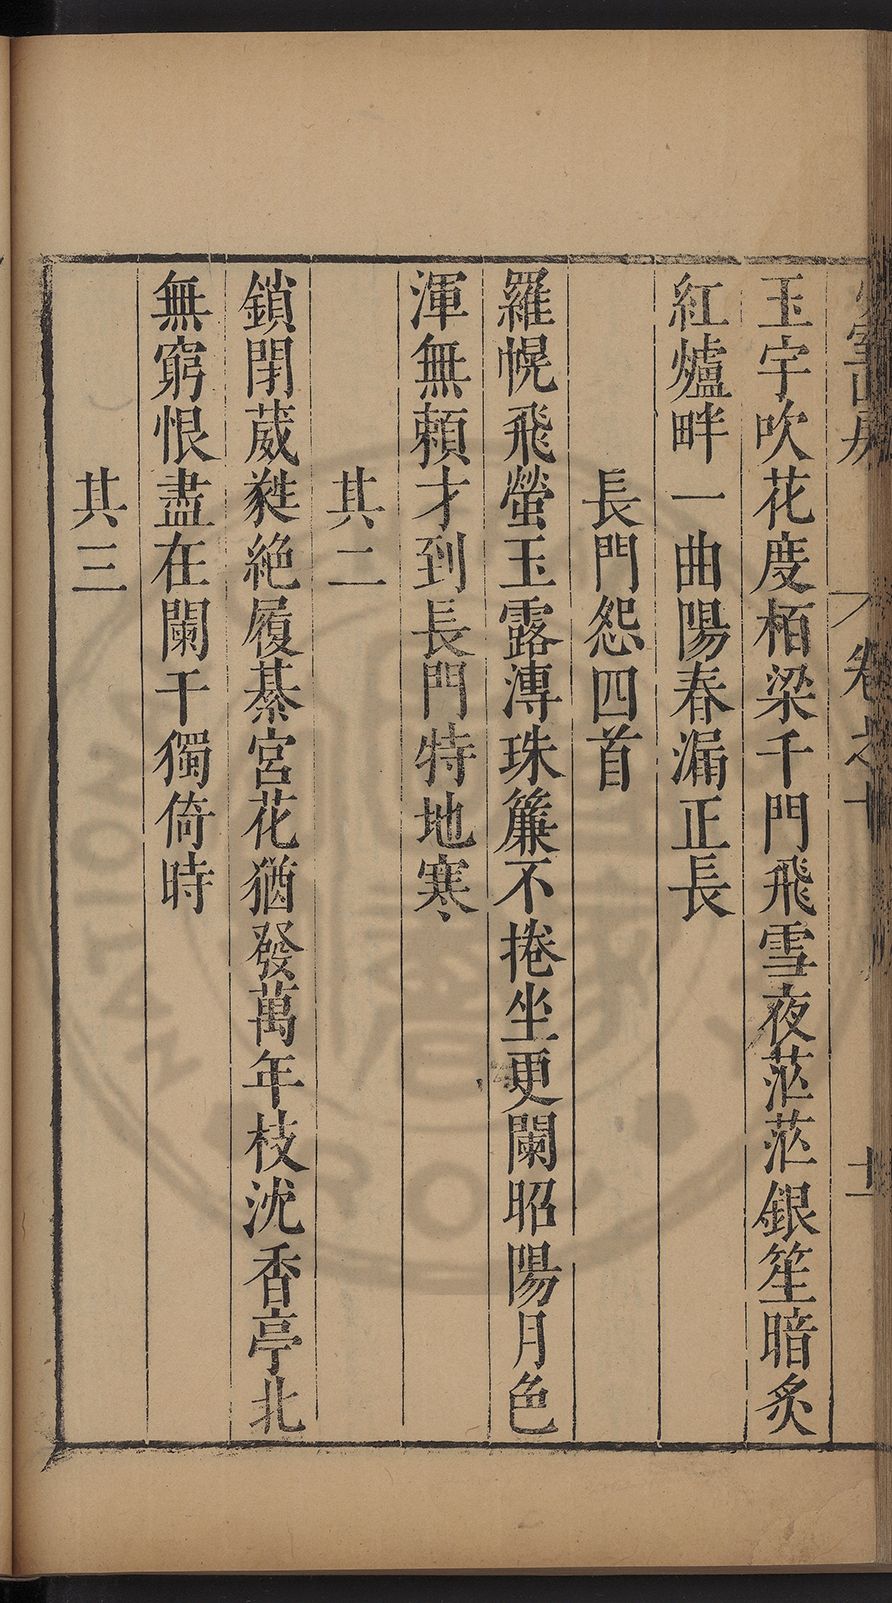 卷之十
十一
玉宇吹花度栢梁千門飛雪夜茫茫銀笙暗炙
紅爐畔一曲陽春漏正長
長門怨四首
羅幌飛螢玉露漙珠簾不捲坐更闌昭陽月色
渾無賴才到長門特地寒
其二
鎖閉葳蕤絶履綦宮花猶發萬年枝沈香亭北
無窮恨盡在闌干獨倚時
其三